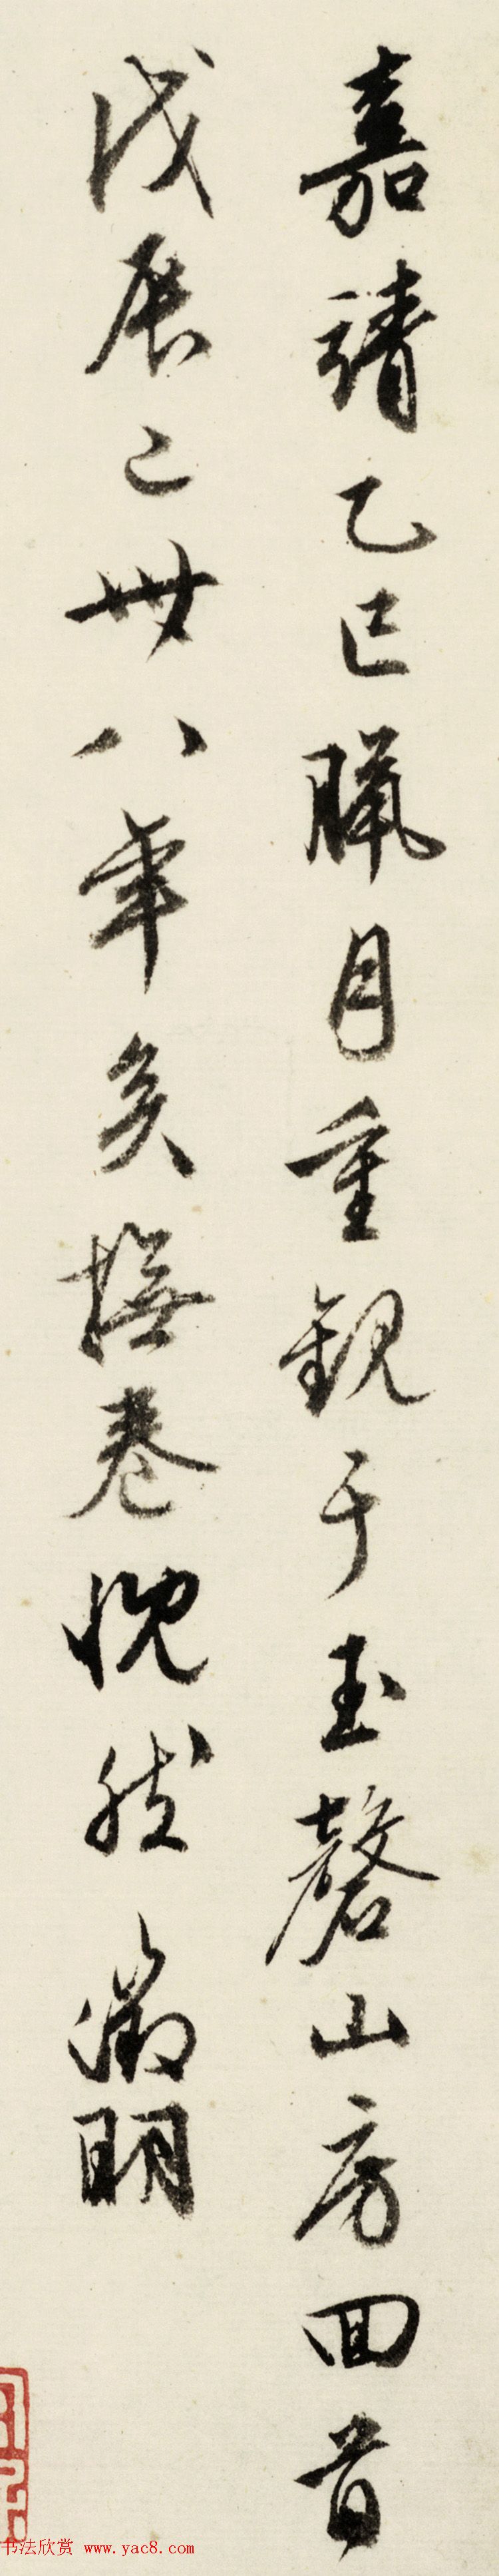 嘉靖乙巳臘月重觀于玉磬山房回首
戊辰已卅八年矣撫卷怳然 徵明
书法欣赏 www.yac8.com